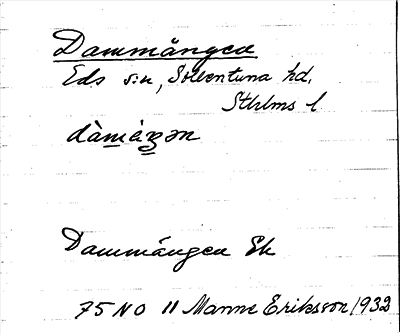 Dammängen
Eds s:n, Sollentuna hd.
Sthlms l
dàmäŋən
Dammängen Ek
75 NO 11 Manne Eriksson 1932